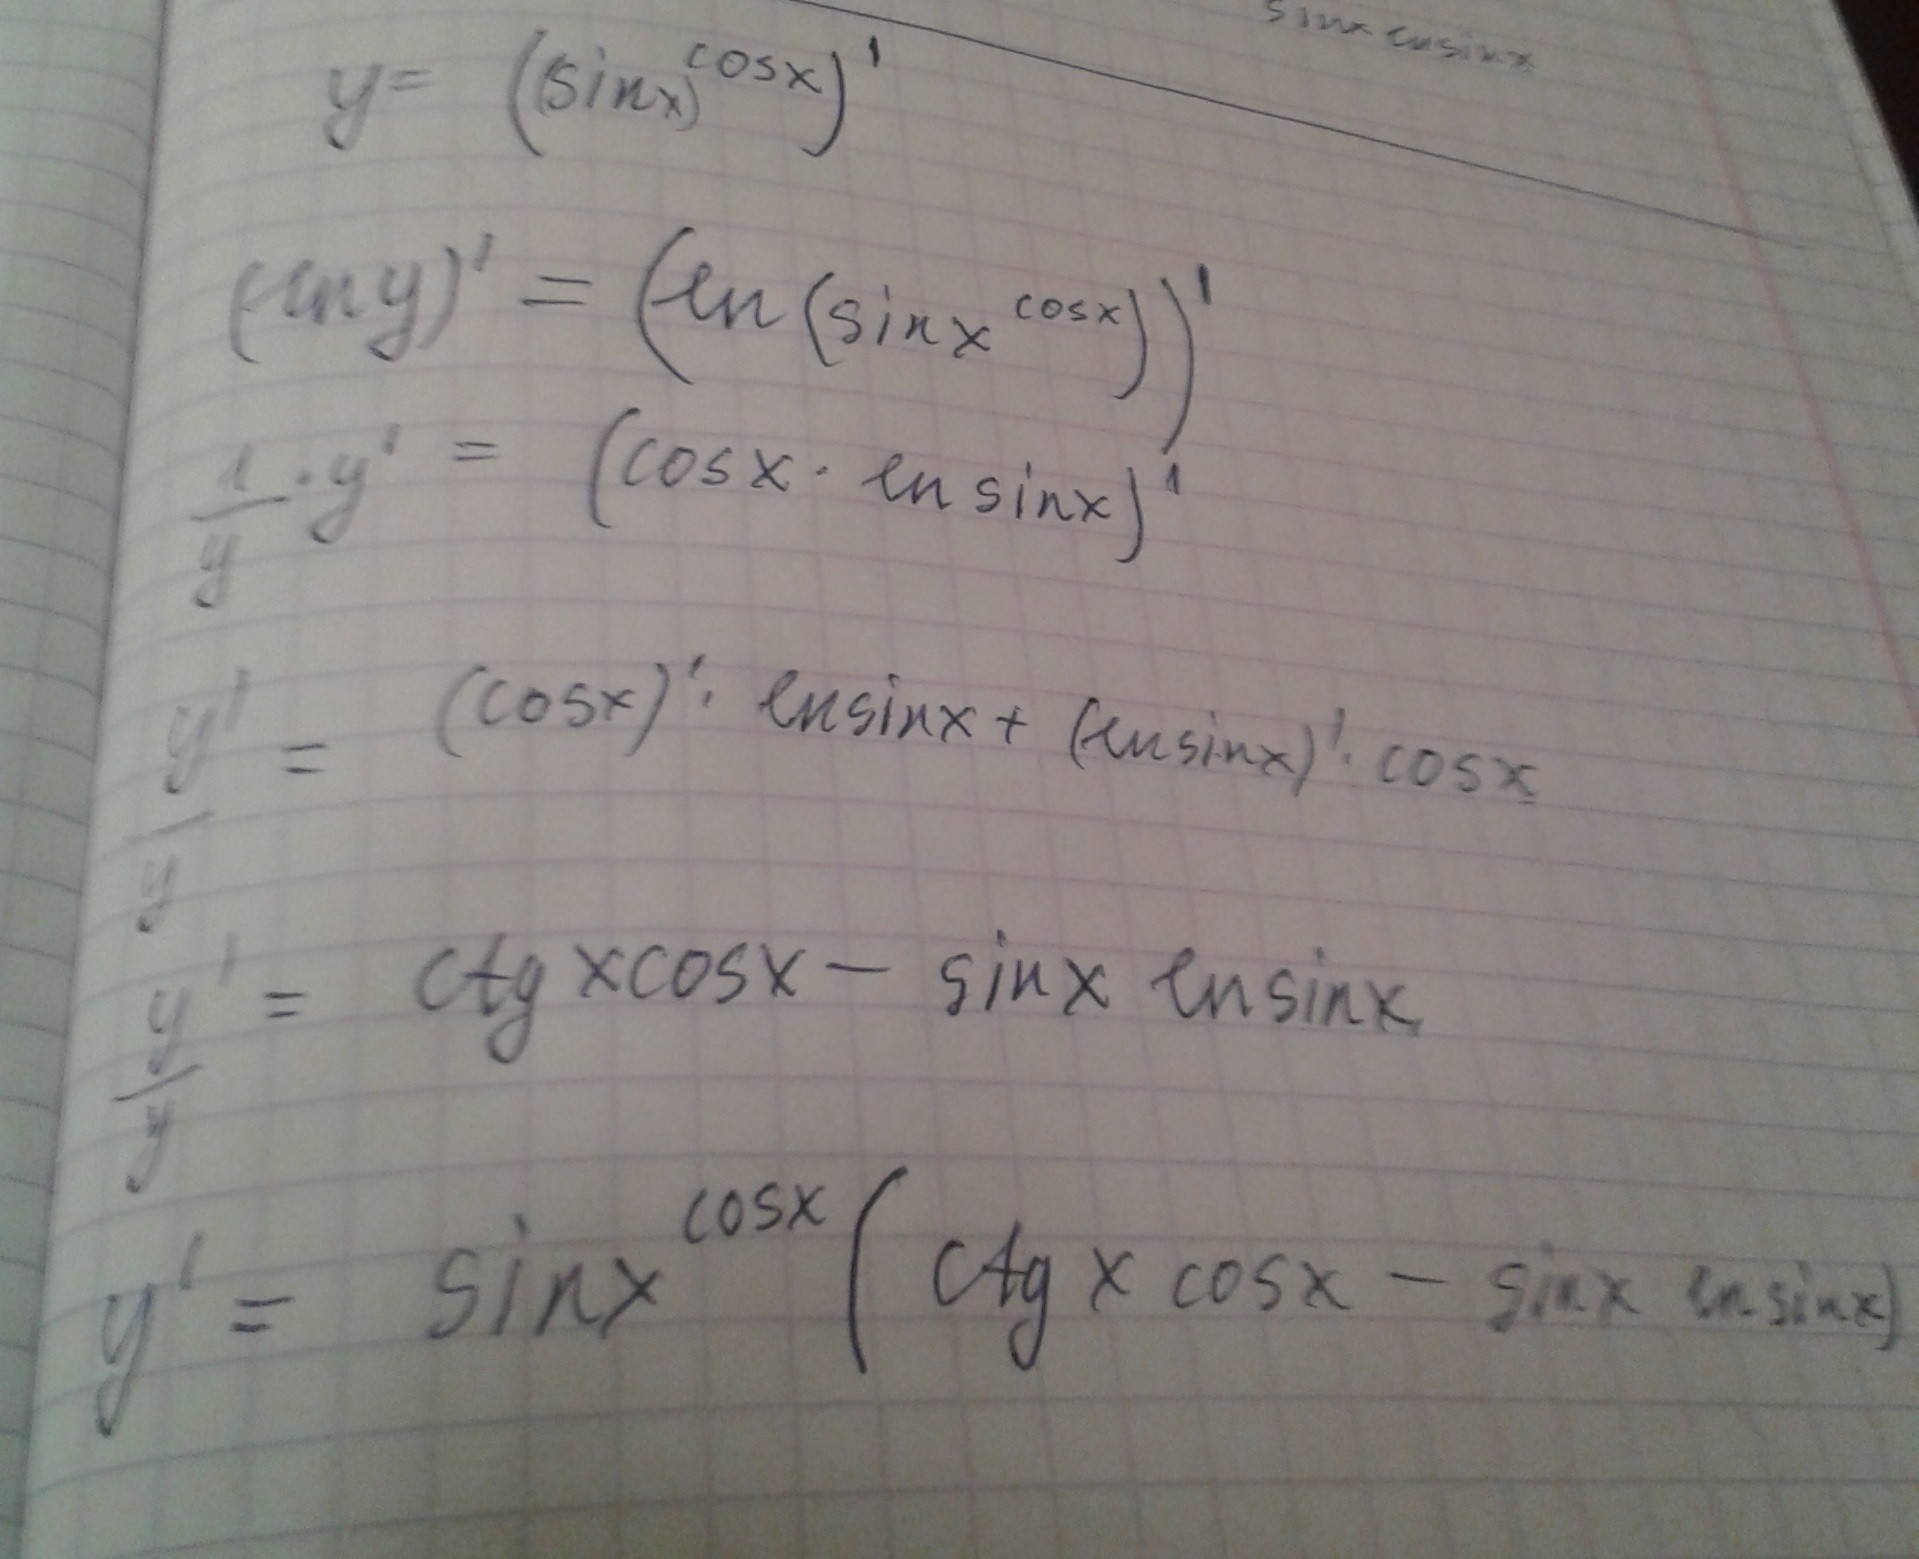 sinx ln sinx
y = ((sinx)^cosx)'
(ln y)' = (ln (sinx^cosx))'
1/y · y' = (cosx · ln sinx)'
y'/y = (cosx)' · ln sinx + (ln sinx)' · cosx
y'/y = ctg x cosx - sinx ln sinx
y' = sinx^cosx (ctg x cosx - sinx ln sinx)